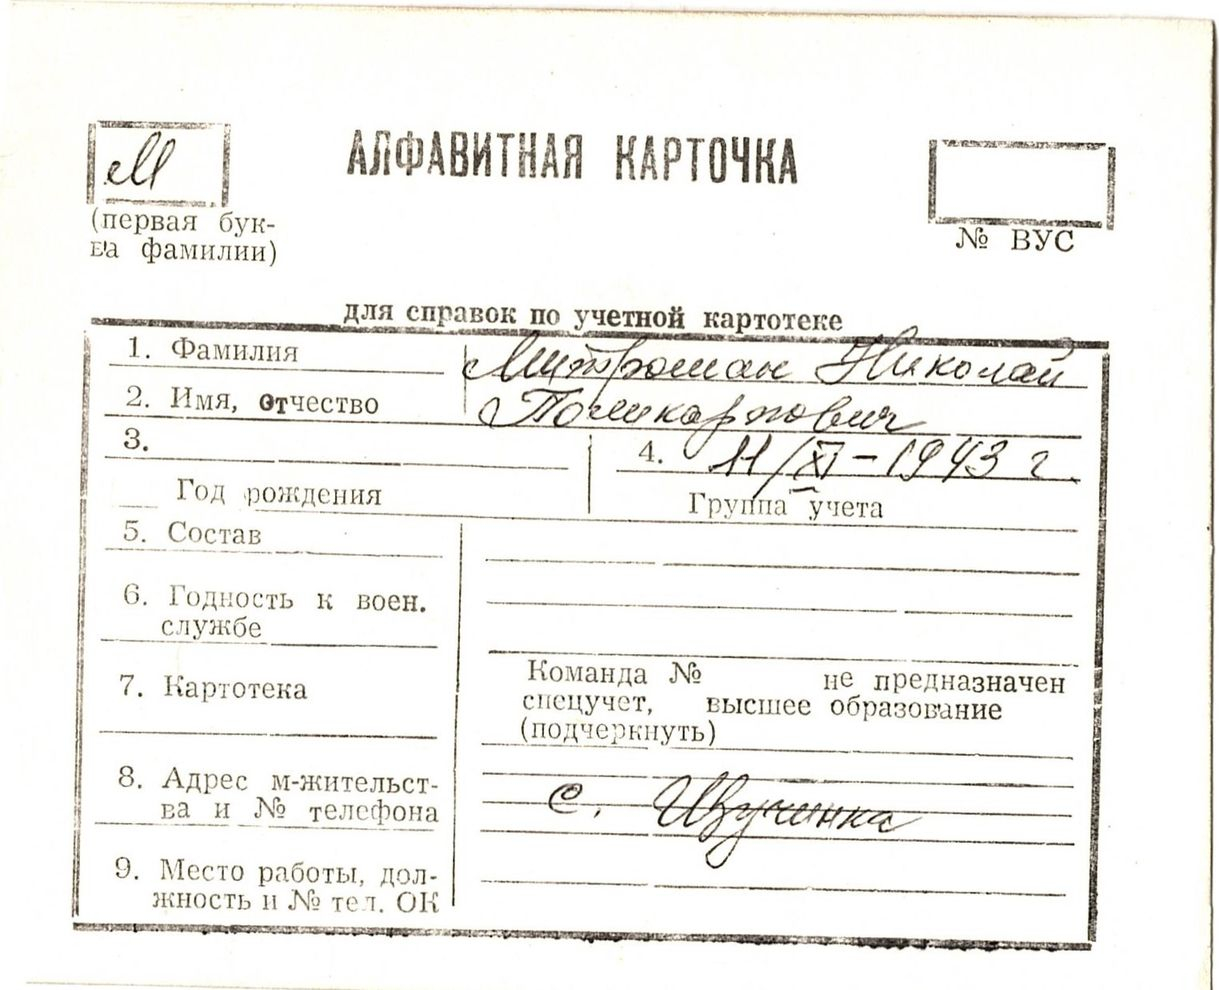 М
АЛФАВИТНАЯ КАРТОЧКА
(первая бук-
ва фамилии)
№ ВУС
для справок по учетной картотеке
1. Фамилия Митроман Николай
2. Имя, отчество Поликарпович
3. 4. 11/XI-1943 г.
Год рождения Группа учета
5. Состав
6. Годность к воен.
службе
7. Картотека
Команда № не предназначен
спецучет, высшее образование
(подчеркнуть)
8. Адрес м-жительст-
ва и № телефона
с.
9. Место работы, дол-
жность и № тел. ОК